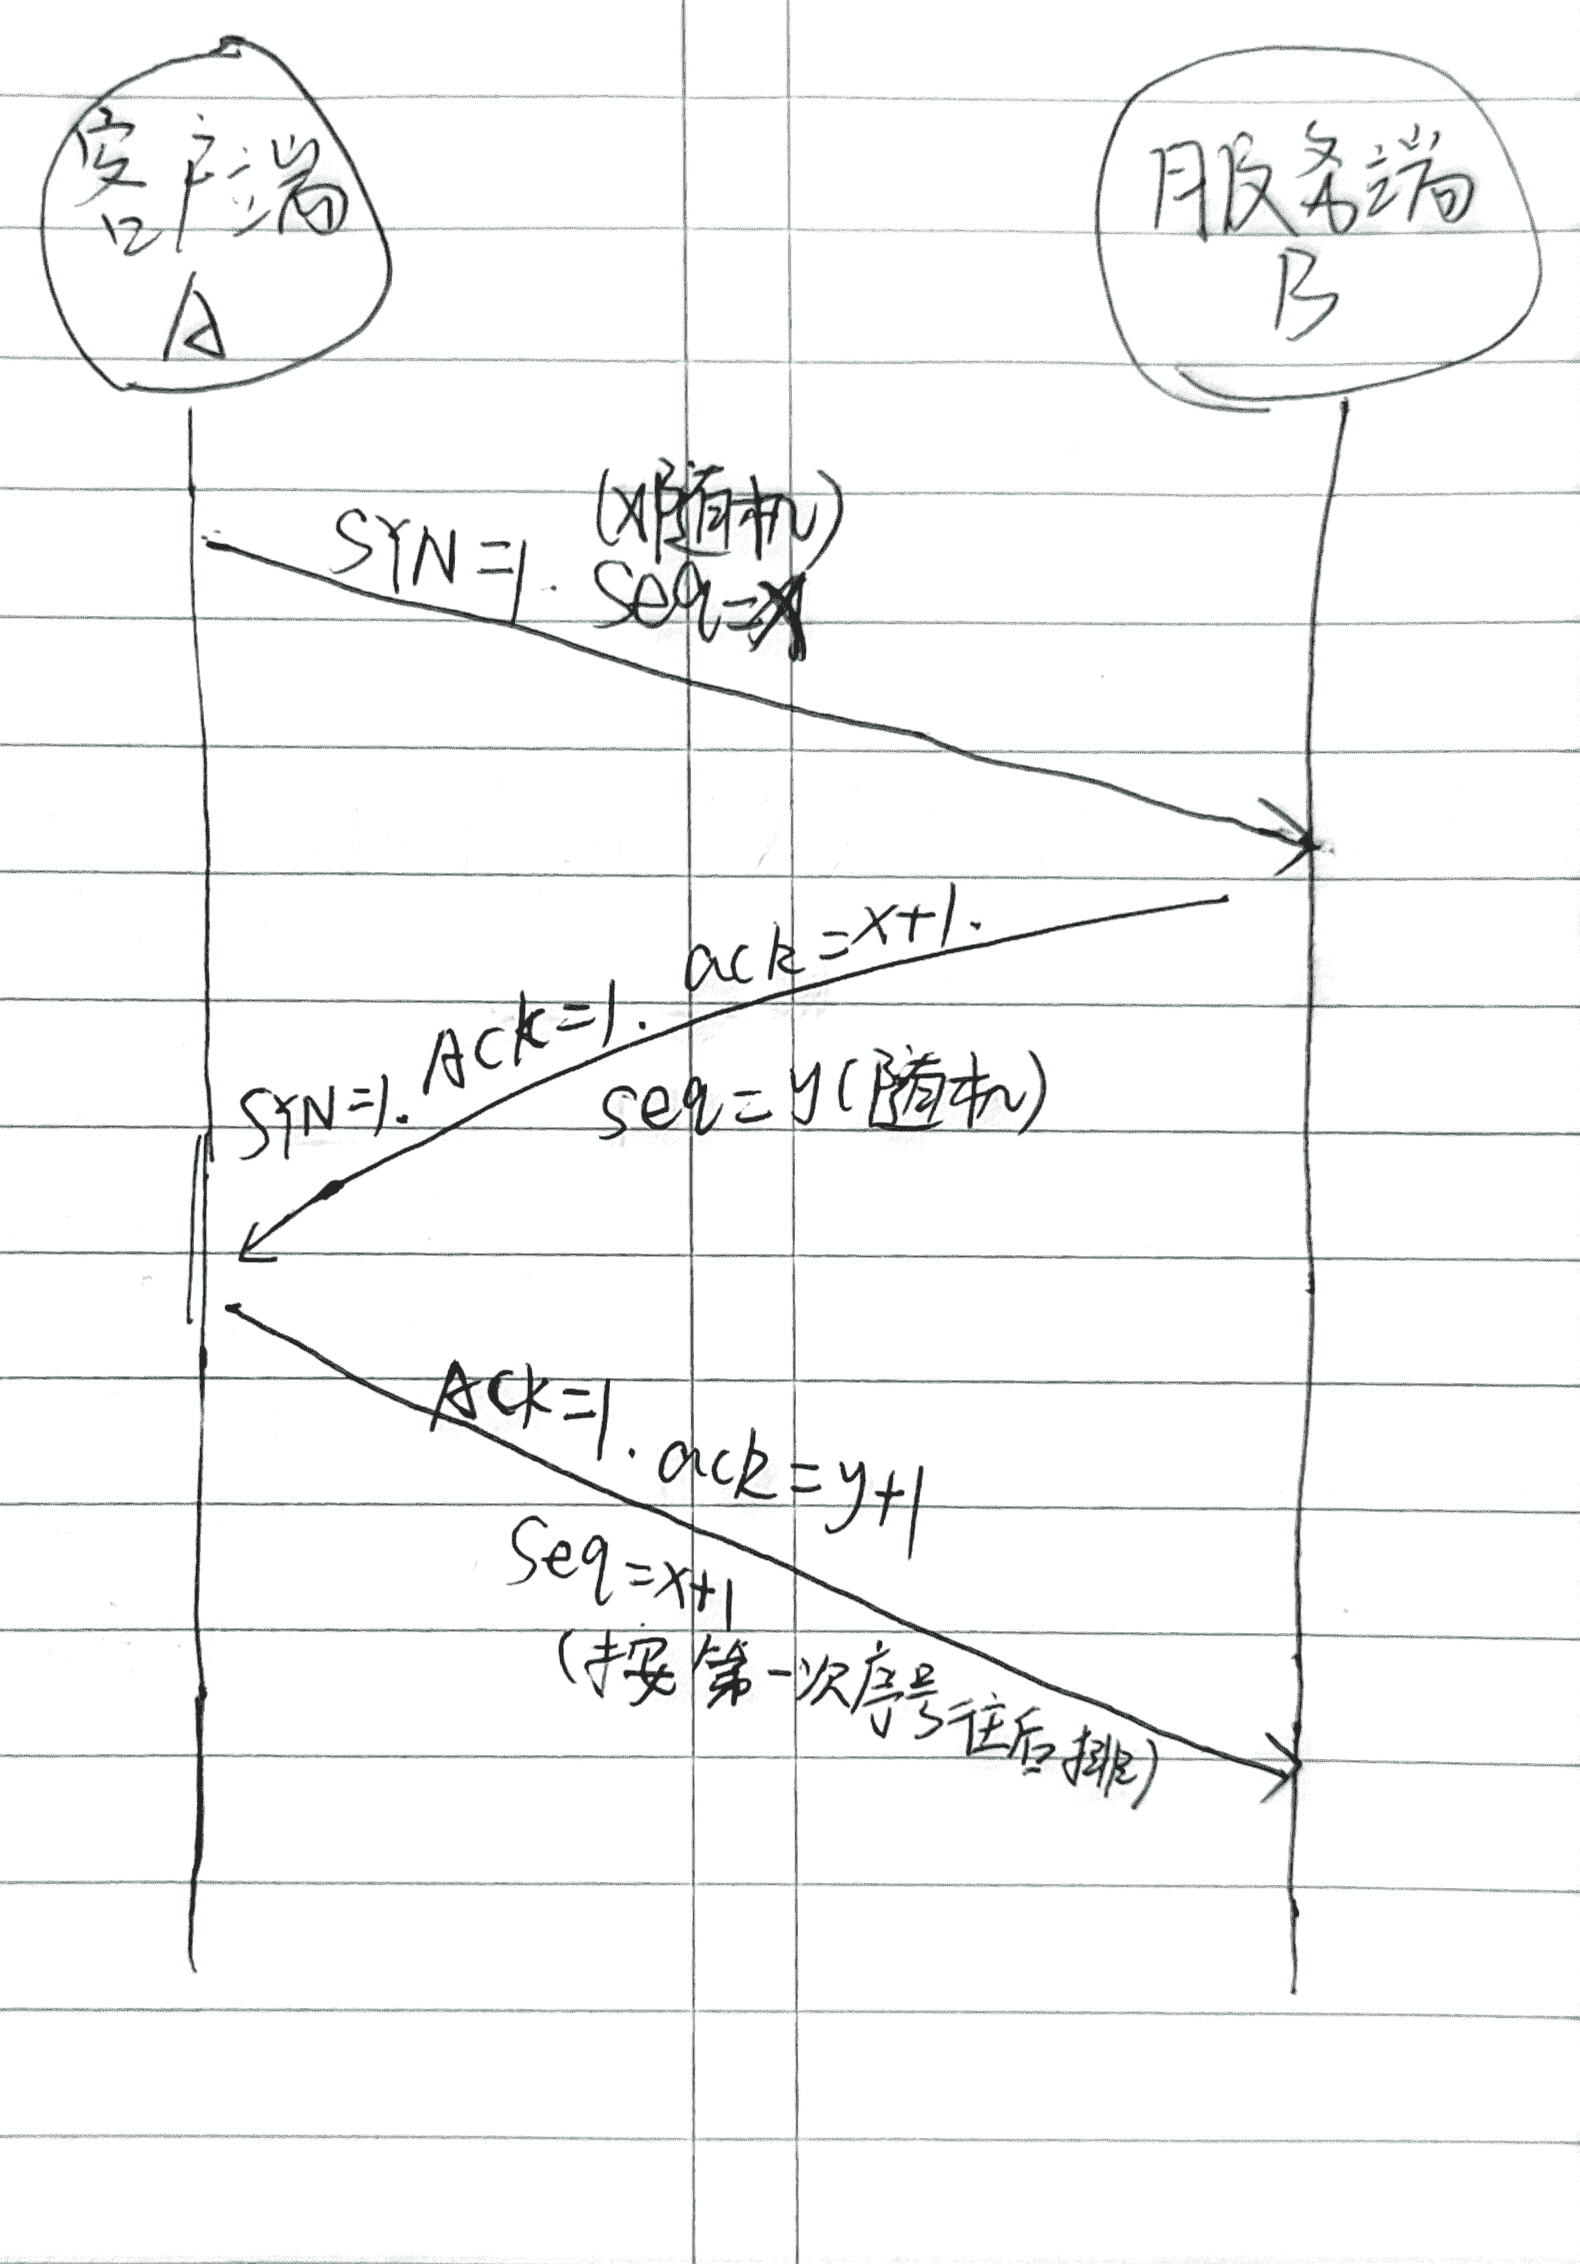 客户端
A
服务端
B
(x随机)
SYN=1. seq=x
ack=x+1.
ACK=1.
SYN=1.
seq=y(随机)
ACK=1. ack=y+1
Seq=x+1
(按第一次序号往后排)